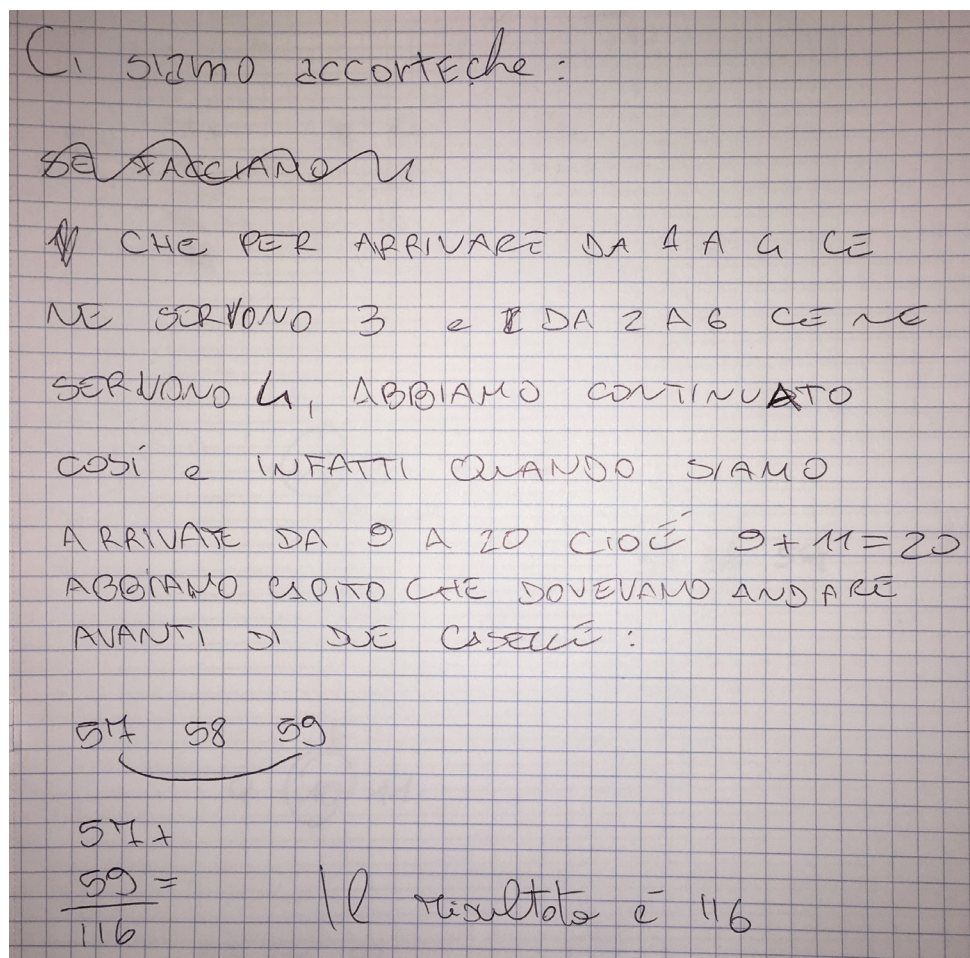 Ci siamo accorte che:
SE FACCIAMO
CHE PER ARRIVARE DA 1 A 4 CE
NE SERVONO 3 e DA 2 A 6 CE NE
SERVONO 4, ABBIAMO CONTINUATO
COSÍ e INFATTI QUANDO SIAMO
ARRIVATE DA 9 A 20 CIOÉ 9+11=20
ABBIAMO CAPITO CHE DOVEVAMO ANDARE
AVANTI DI DUE CASELLE:
57 58 59
57+
59=
116
Il risultato è 116